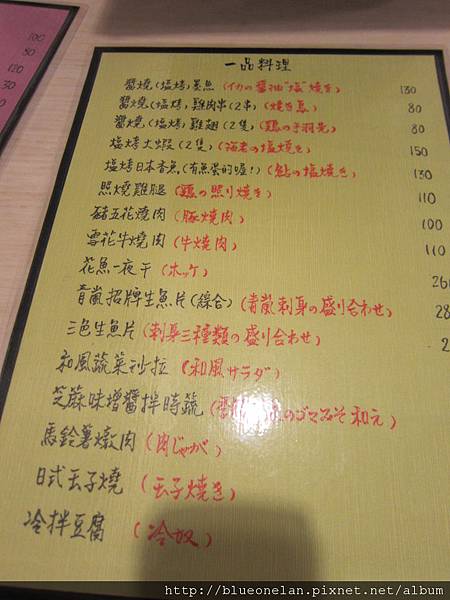 100
50
120
30
80
一品料理
醬燒(塩烤)墨魚 (イカの醤油"塩"焼き) 130
醬燒(塩烤)雞肉串(2串)(焼き鳥) 80
醬燒(塩烤)雞翅(2隻)(鶏の手羽先) 80
塩烤大蝦(2隻)(海老の塩焼き) 150
塩烤日本香魚(有魚蛋的喔!)(鮎の塩焼き) 130
照燒雞腿 (鶏の照り焼き) 110
豬五花燒肉 (豚焼肉) 100
雪花牛燒肉 (牛焼肉) 110
花魚一夜干 (ホッケ) 26
青嵐招牌生魚片(綜合)(青嵐刺身の盛り合わせ) 28
三色生魚片 (刺身三種類の盛り合わせ) 2
和風蔬菜沙拉 (和風サラダ)
芝麻味增醬拌時蔬 のゴマみそ和え)
馬鈴薯燉肉 (肉じゃが)
日式玉子燒 (玉子焼き)
冷拌豆腐 (冷奴)
http://blueonelan.pixnet.net/album